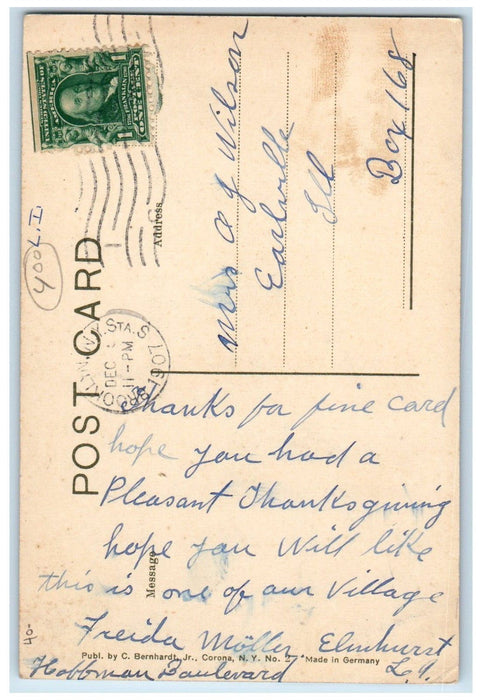 POST CARD
Address
Mrs A J Wilson
Earlville
Ill
Box 168
400
L.I
BROOKLYN, N.Y. STA. S
DEC
11-PM
1907
Message
Thanks for fine card
hope you had a
Pleasant Thanksgiving
hope you will like
this is one of our Village
Freida Möller, Elmhurst
Hoffman Boulevard L.I.
40-
Publ. by C. Bernhardt, Jr., Corona, N. Y. No. 2. Made in Germany